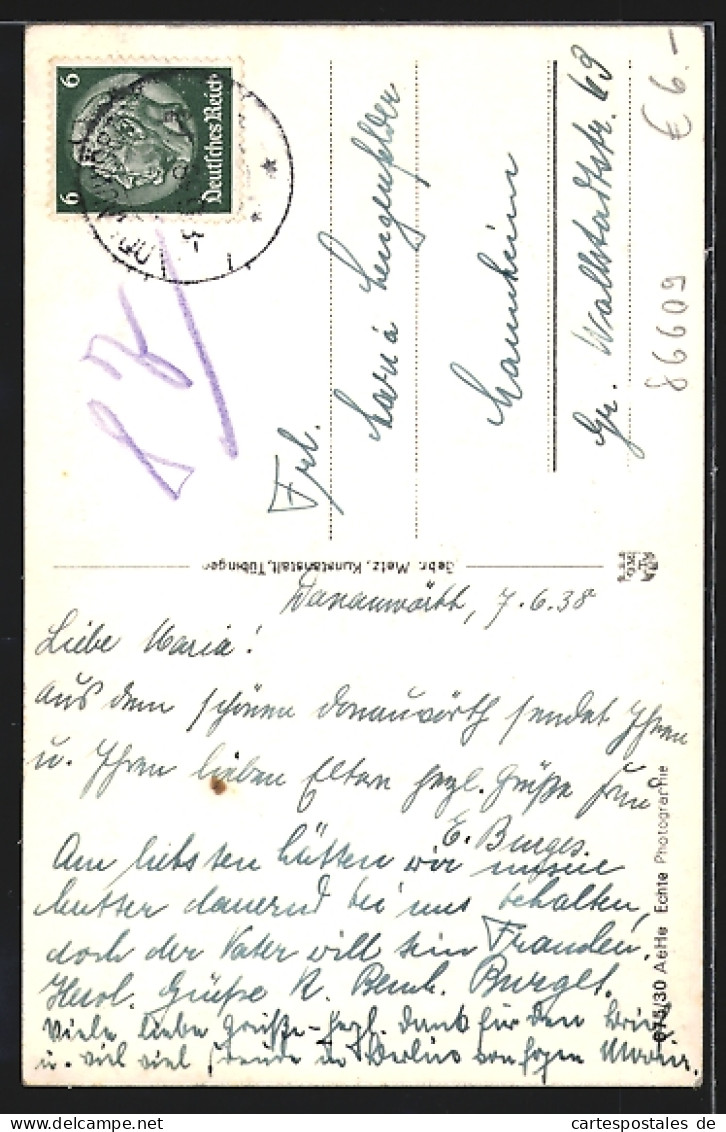 6 6
Deutsches Reich
€ 6.-
86609
Frl.
Maria Lengenfelder
Mannheim
Gr. Wallstadtstr. 69
Gebr. Metz, Kunstanstalt, Tübingen
Donauwörth, 7.6.38
Liebe Maria!
Aus dem schönen Donauwörth sendet Ihnen
u. Ihren lieben Eltern herzl. Grüße
E. Burges.
Am liebsten hätten wir unsere
Mutter dauernd bei uns behalten,
doch der Vater will sein Frauchen.
Herzl. Grüße
Viele liebe Grüße - herzl. Dank für den Brief
u. viel viel Freude in Berlin
675/30 AeHe Echte Photographie
cartespostales de